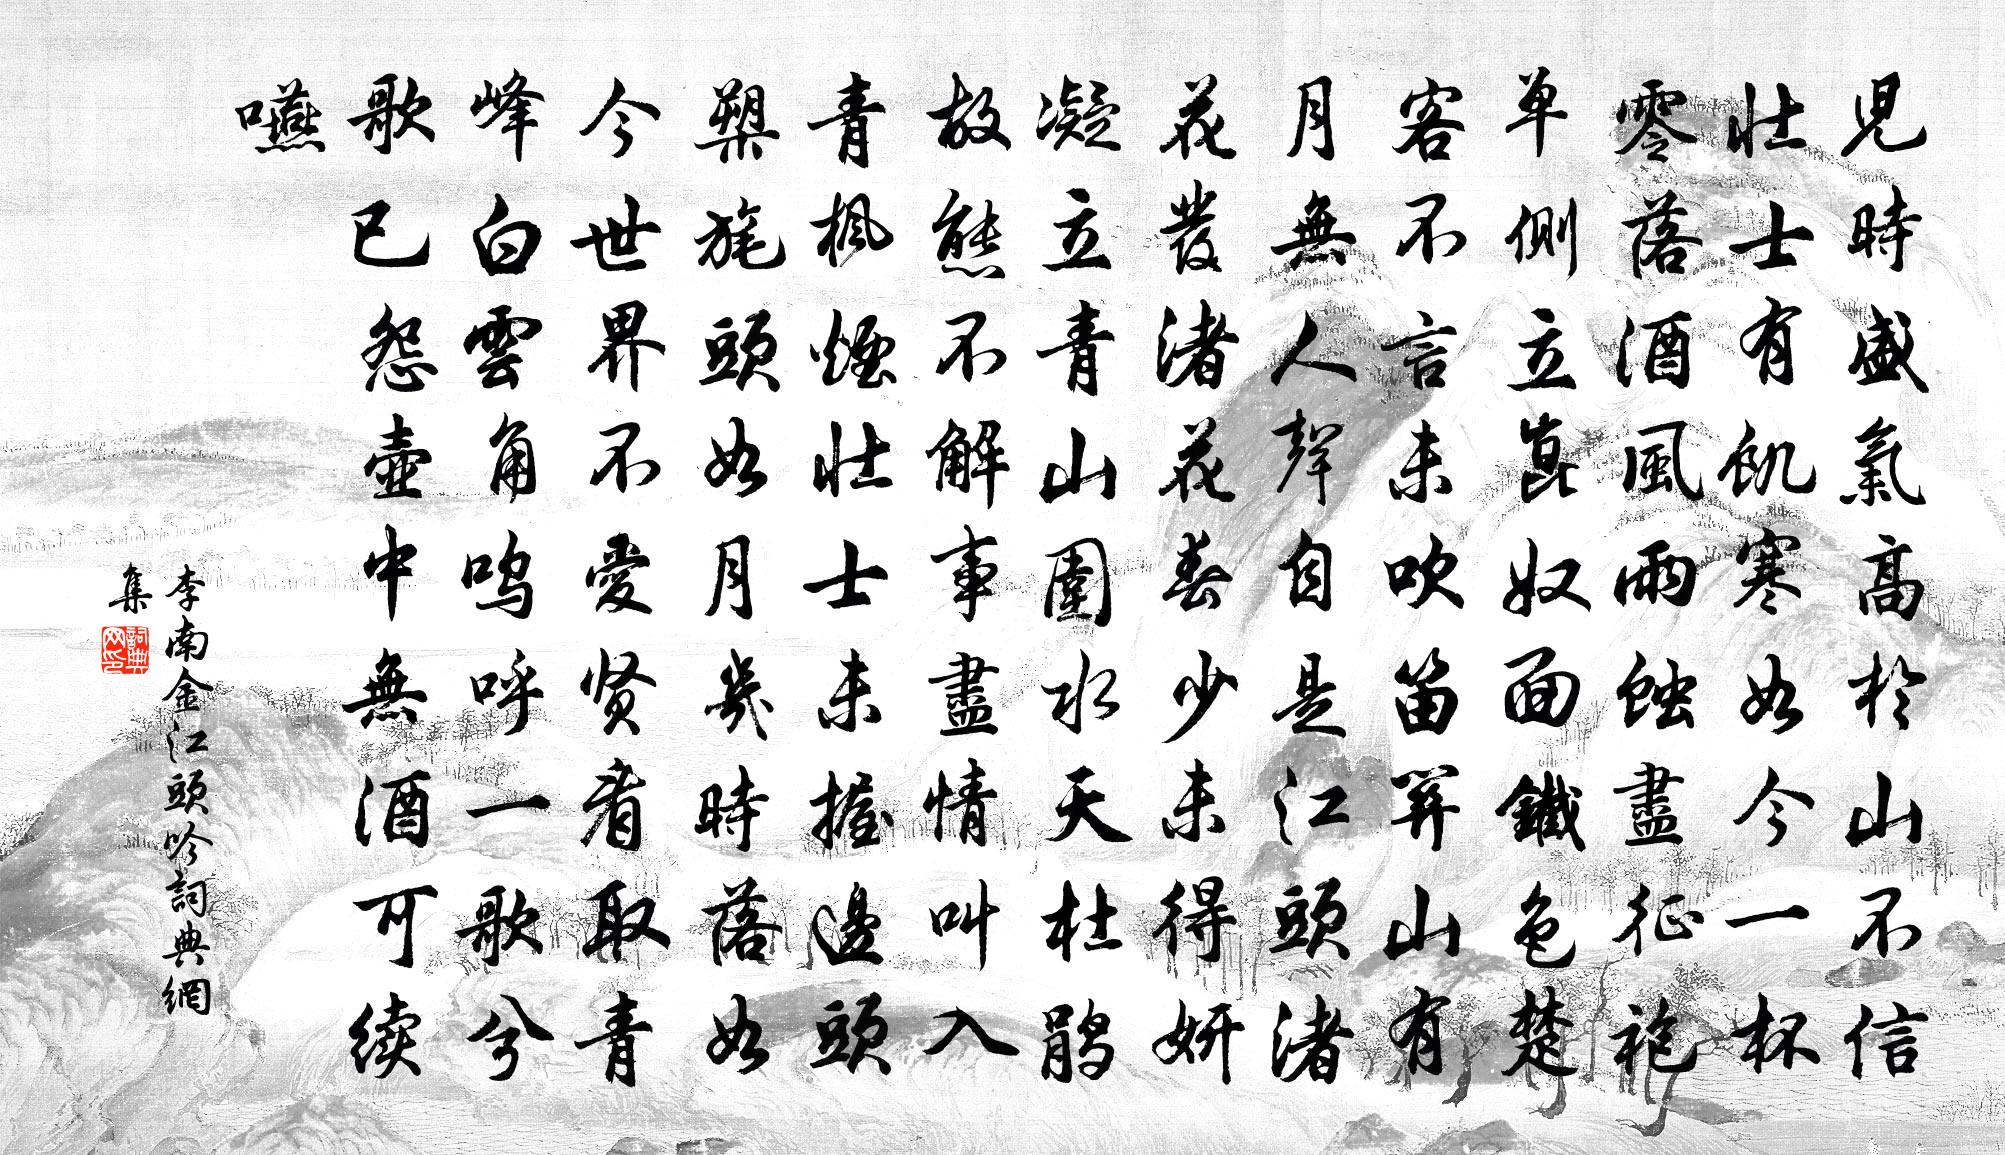 兒時盛氣高於山不信
壯士有飢寒如今一杯
零落酒風雨蝕盡征袍
單側立崑奴面鐵色楚
客不言未吹笛開山有
月無人聲自是江頭渚
花發渚花春少未得妍
凝立青山圍水天杜鵑
故態不解事盡情叫入
青楓煙壯士未握邊頭
槊旄頭如月幾時落如
今世界不愛賢看取青
峰白雲角嗚呼一歌兮
歌已怨壺中無酒可續
嚥
李南金江頭吟詞典網
集
詞典
网印